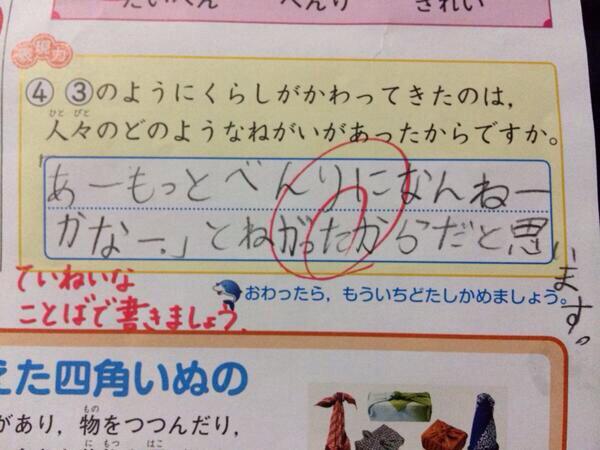 たいへん べんり きれい
表現力
④ ③のようにくらしがかわってきたのは、
ひと びと
人々のどのようなねがいがあったからですか。
「あーもっとべんりになんねー
かなー。」とねがったからだと思
います。
ていねいな
ことばで書きましょう。
おわったら、もういちどたしかめましょう。
た四角いぬの
があり、物をつつんだり、
もの
にもつ はこ